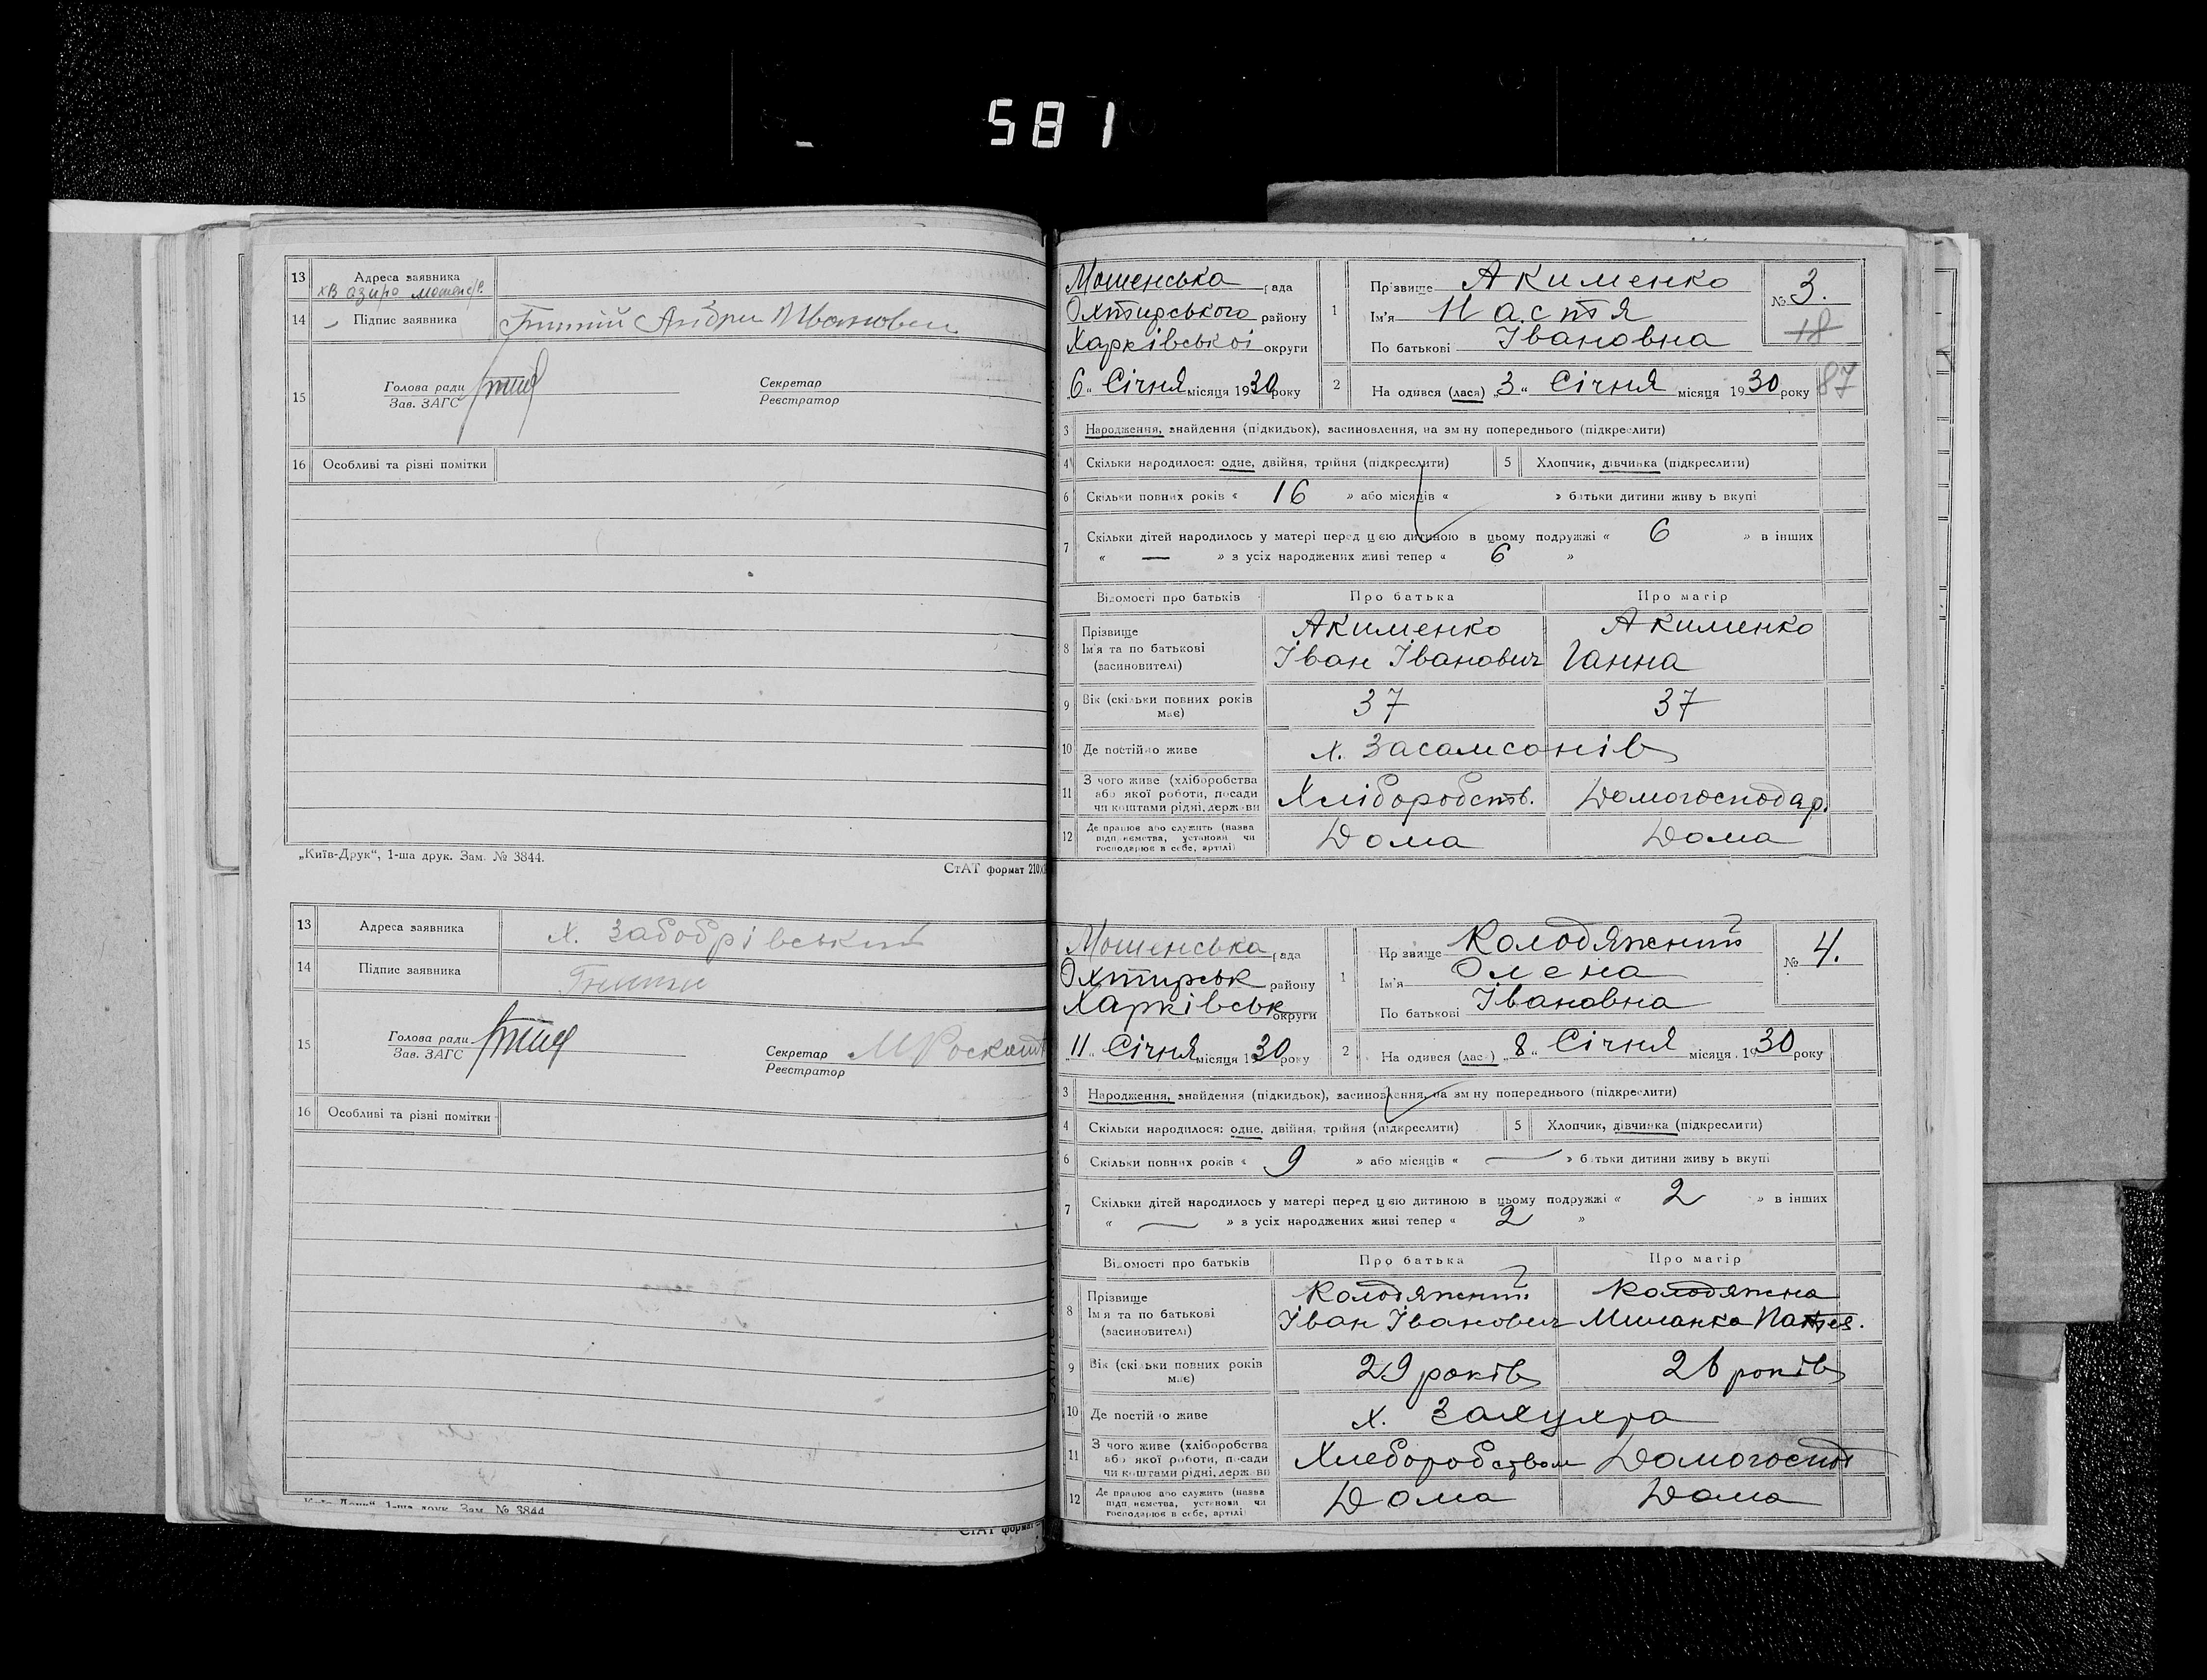 581
13 Адреса заявника
14 Підпис заявника Андрій Иванович
15 Голова ради
Зав. ЗАГС
Секретар
Реєстратор
16 Особливі та різні помітки
„Київ-Друк“, 1-ша друк. Зам. № 3844.
СтАТ формат 210х
13 Адреса заявника х. Забобрівський
14 Підпис заявника
15 Голова ради
Зав. ЗАГС
Секретар
Реєстратор
16 Особливі та різні помітки
1-ша друк. Зам. № 3844
СтАТ формат
Мошенська рада
Охтирського району
Харківської округи
„6“ Січня місяця 1930 року
1 Прізвище Акименко
Ім'я Настя
По батькові Івановна
№ 3.
18
2 Народився (лася) „3“ Січня місяця 1930 року
87
3 Народження, знайдення (підкидьок), засиновлення, на зміну попереднього (підкреслити)
4 Скільки народилося: одне, двійня, трійня (підкреслити)
5 Хлопчик, дівчинка (підкреслити)
6 Скільки повних років « 16 » або місяців « » батьки дитини живуть вкупі
7 Скільки дітей народилось у матері перед цією дитиною в цьому подружжі « 6 » в інших
« — » з усіх народжених живі тепер « 6 »
Відомості про батьків Про батька Про матір
8 Прізвище Акименко Акименко
Ім'я та по батькові Іван Іванович Ганна
(засиновителі)
9 Вік (скільки повних років має) 37 37
10 Де постійно живе х. Засамсонів
11 З чого живе (хліборобства
або якої роботи, посади Хліборобств. Домогосподар.
чи коштами рідні, держави
12 Де працює або служить (назва
підприємства, установи чи Дома Дома
господарює в себе, артілі)
Мошенська рада
Охтирськ району
Харківськ округи
„11“ Січня місяця 1930 року
1 Прізвище Колодяжний
Ім'я Олена
По батькові Івановна
№ 4.
2 Народився (лася) „8“ Січня місяця 1930 року
3 Народження, знайдення (підкидьок), засиновлення, на зміну попереднього (підкреслити)
4 Скільки народилося: одне, двійня, трійня (підкреслити)
5 Хлопчик, дівчинка (підкреслити)
6 Скільки повних років « 9 » або місяців « — » батьки дитини живуть вкупі
7 Скільки дітей народилось у матері перед цією дитиною в цьому подружжі « 2 » в інших
« — » з усіх народжених живі тепер « 2 »
Відомості про батьків Про батька Про матір
8 Прізвище Колодяжний Колодяжна
Ім'я та по батькові Іван Іванович Миланка
(засиновителі)
9 Вік (скільки повних років має) 29 років 26 років
10 Де постійно живе х.
11 З чого живе (хліборобства
або якої роботи, посади Хлеборобством Домогоспод
чи коштами рідні, держави
12 Де працює або служить (назва
підприємства, установи чи Дома Дома
господарює в себе, артілі)